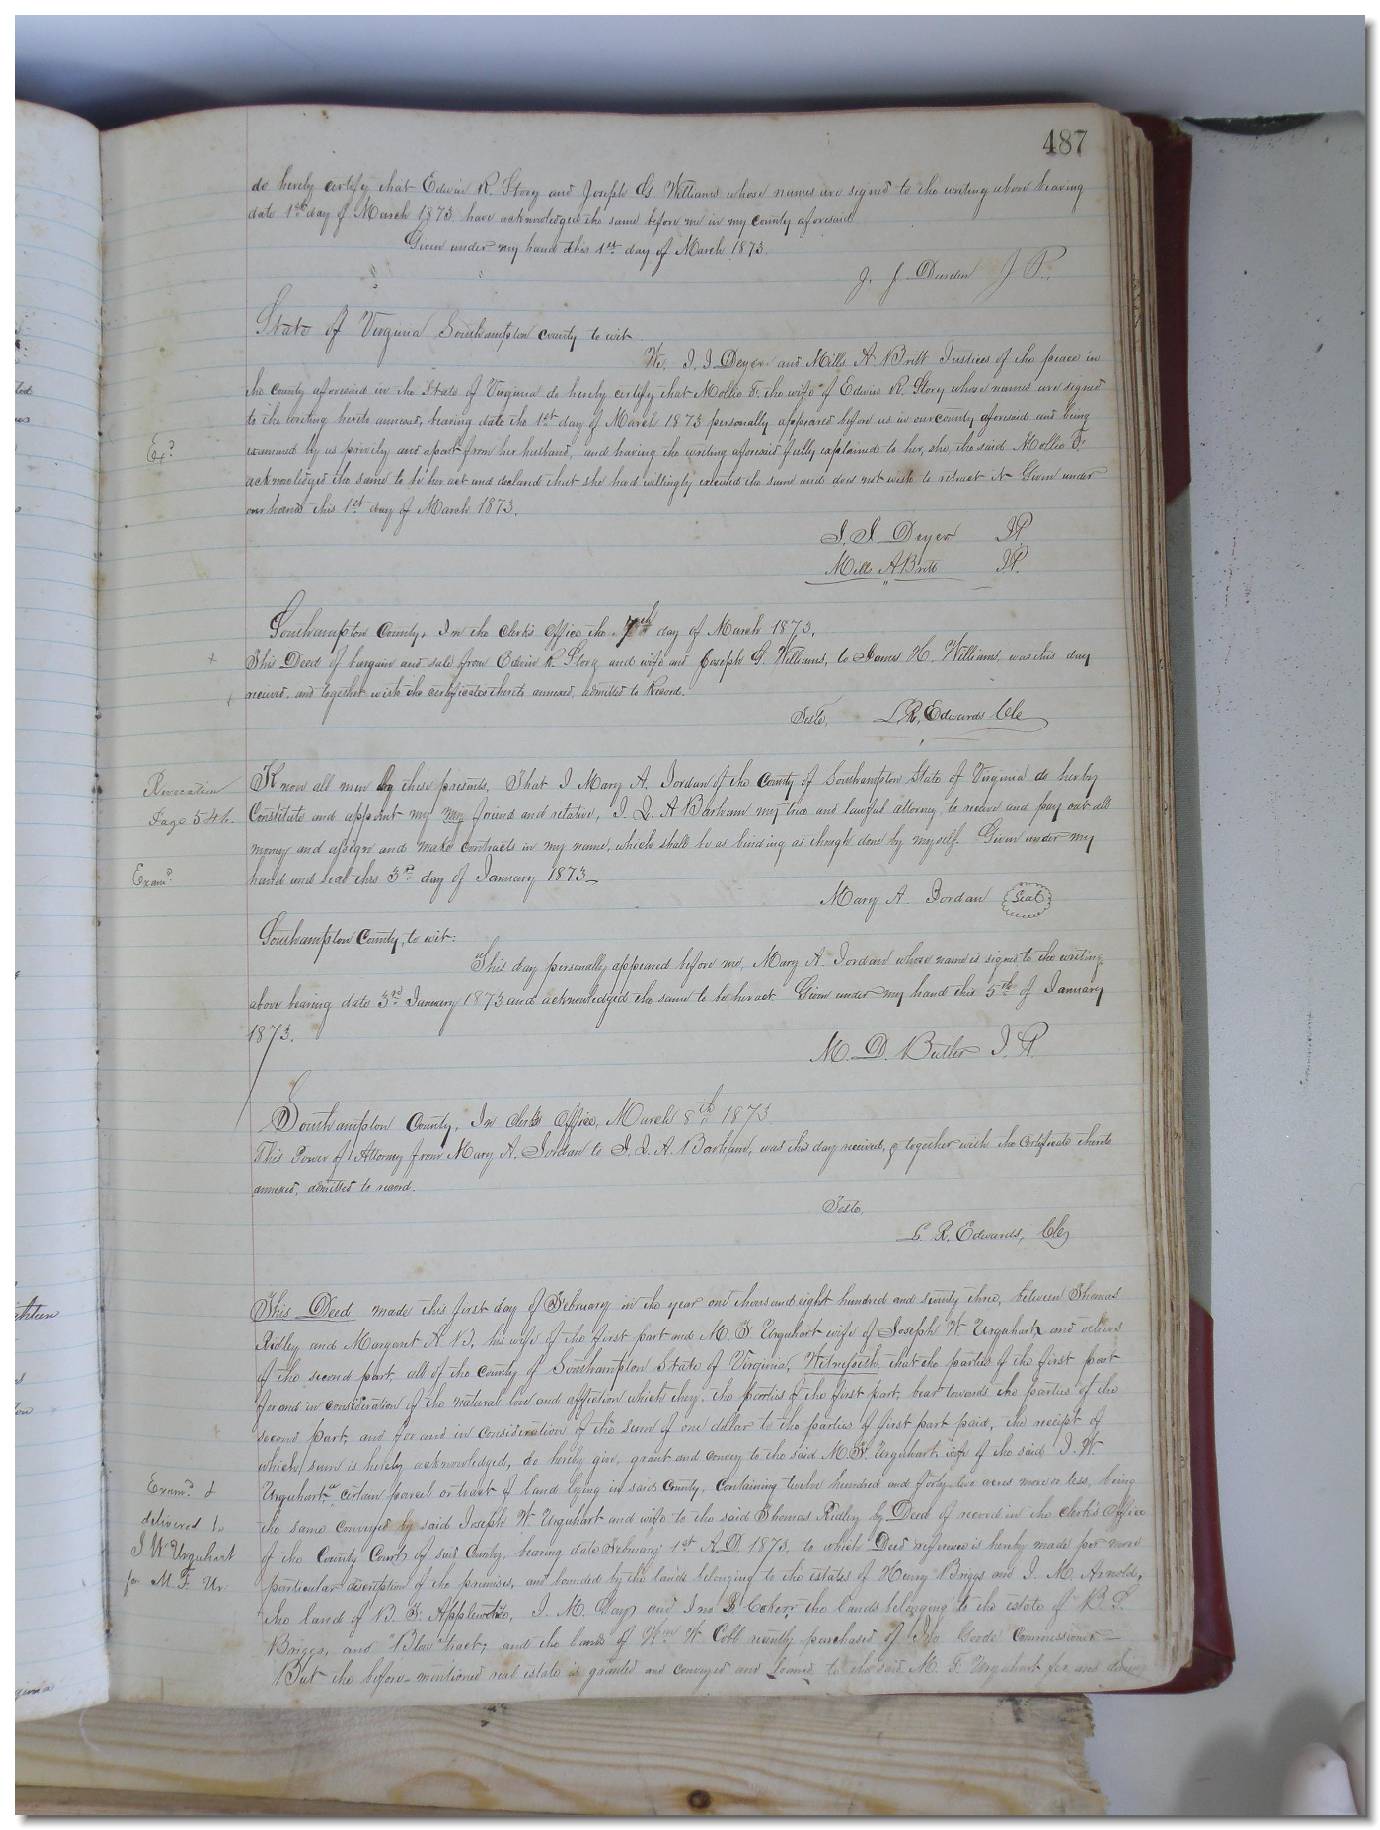 487
do hereby certify that Edwin R. Story and Joseph G. Williams whose names are signed to the writing above bearing
date 1st day of March 1873 have acknowledged the same before me in my county aforesaid
Given under my hand this 1st day of March 1873.
J. J. Darden J P.
State of Virginia Southampton County to wit
We, J. J. Deyer and Mills A. Britt Justices of the peace in
the County aforesaid in the State of Virginia do hereby certify that Mollie F. the wife of Edwin R. Story whose names are signed
to the writing hereto annexed, bearing date the 1st day of March 1873 personally appeared before us in our county aforesaid and being
Exd
examined by us privily and apart from her husband, and having the writing aforesaid fully explained to her, she, the said Mollie F.
acknowledged the same to be her act and declared that she had willingly executed the same and does not wish to retract it Given under
our hands this 1st day of March 1873.
J. J. Deyer JP.
Mills A Britt JP.
Southampton County, In the Clerk's Office the 7th day of March 1873.
This Deed of bargain and sale from Edwin R. Story and wife and Joseph G. Williams, to James H. Williams, was this day
received, and together with the certificates thereto annexed, admitted to Record.
Teste, L. R. Edwards Clk
Revocation
Page 546
Know all men by these presents, That I Mary A. Jordan of the County of Southampton State of Virginia do herby
Constitute and appoint my my friend and relative, J. Q. A Barham my true and lawful attorney, to receive and pay out all
money and assign and make contracts in my name, which shall be as binding as though done by myself. Given under my
Examd
hand and seal this 3rd day of January 1873_
Mary A. Jordan Seal
Southampton County, to wit:
This day personally appeared before me, Mary A. Jordan whose name is signed to the writing
above bearing date 3rd January 1873 and acknowledged the same to be her act. Given under my hand this 5th of January
1873.
M. D. Butler J. P.
Southampton County, In Clerks Office, March 8th 1873
This Power of Attorney from Mary A. Jordan to J. Q. A. Barham, was this day received, & together with the Certificate thereto
annexed, admitted to record.
Teste,
L. R. Edwards, Clk
This Deed made this first day of February in the year one thousand eight hundred and seventy three, between Thomas
Ridley and Margaret A B, his wife of the first part and M. F. Urquhart wife of Joseph W Urquhart and others
of the second part, all of the County of Southampton State of Virginia, Witnesseth, that the parties of the first part
for and in consideration of the natural love and affection which they, the parties of the first part, bear towards the parties of the
second part, and for and in consideration of the sum of one dollar to the parties of first part paid, the receipt of
which sum is hereby acknowledged, do hereby give, grant and convey to the said M. F. Urquhart, wife of the said J. W.
Urquhart, a certain parcel or tract of land lying in said County, Containing twelve hundred and forty two acres more or less, being
Examd &
delivered to
J W Urquhart
for M. F. Ur.
the same conveyed by said Joseph W Urquhart and wife to the said Thomas Ridley by Deed of record in the Clerk's Office
of the County Court of said County, bearing date February 1st A.D. 1873, to which Deed reference is hereby made for more
particular description of the premises, and bounded by the lands belonging to the estates of Henry Briggs and J. M. Arnolds,
the land of B. F. Applewhite, J. M. Days and Jno Coker, the lands belonging to the estate of B. L.
Briggs, and "Blow" tract; and the lands of Wm W Cobb recently purchased of Jno Goode Commissioner_
But the before-mentioned real estate is granted and conveyed and loaned to the said M. F. Urquhart for and during